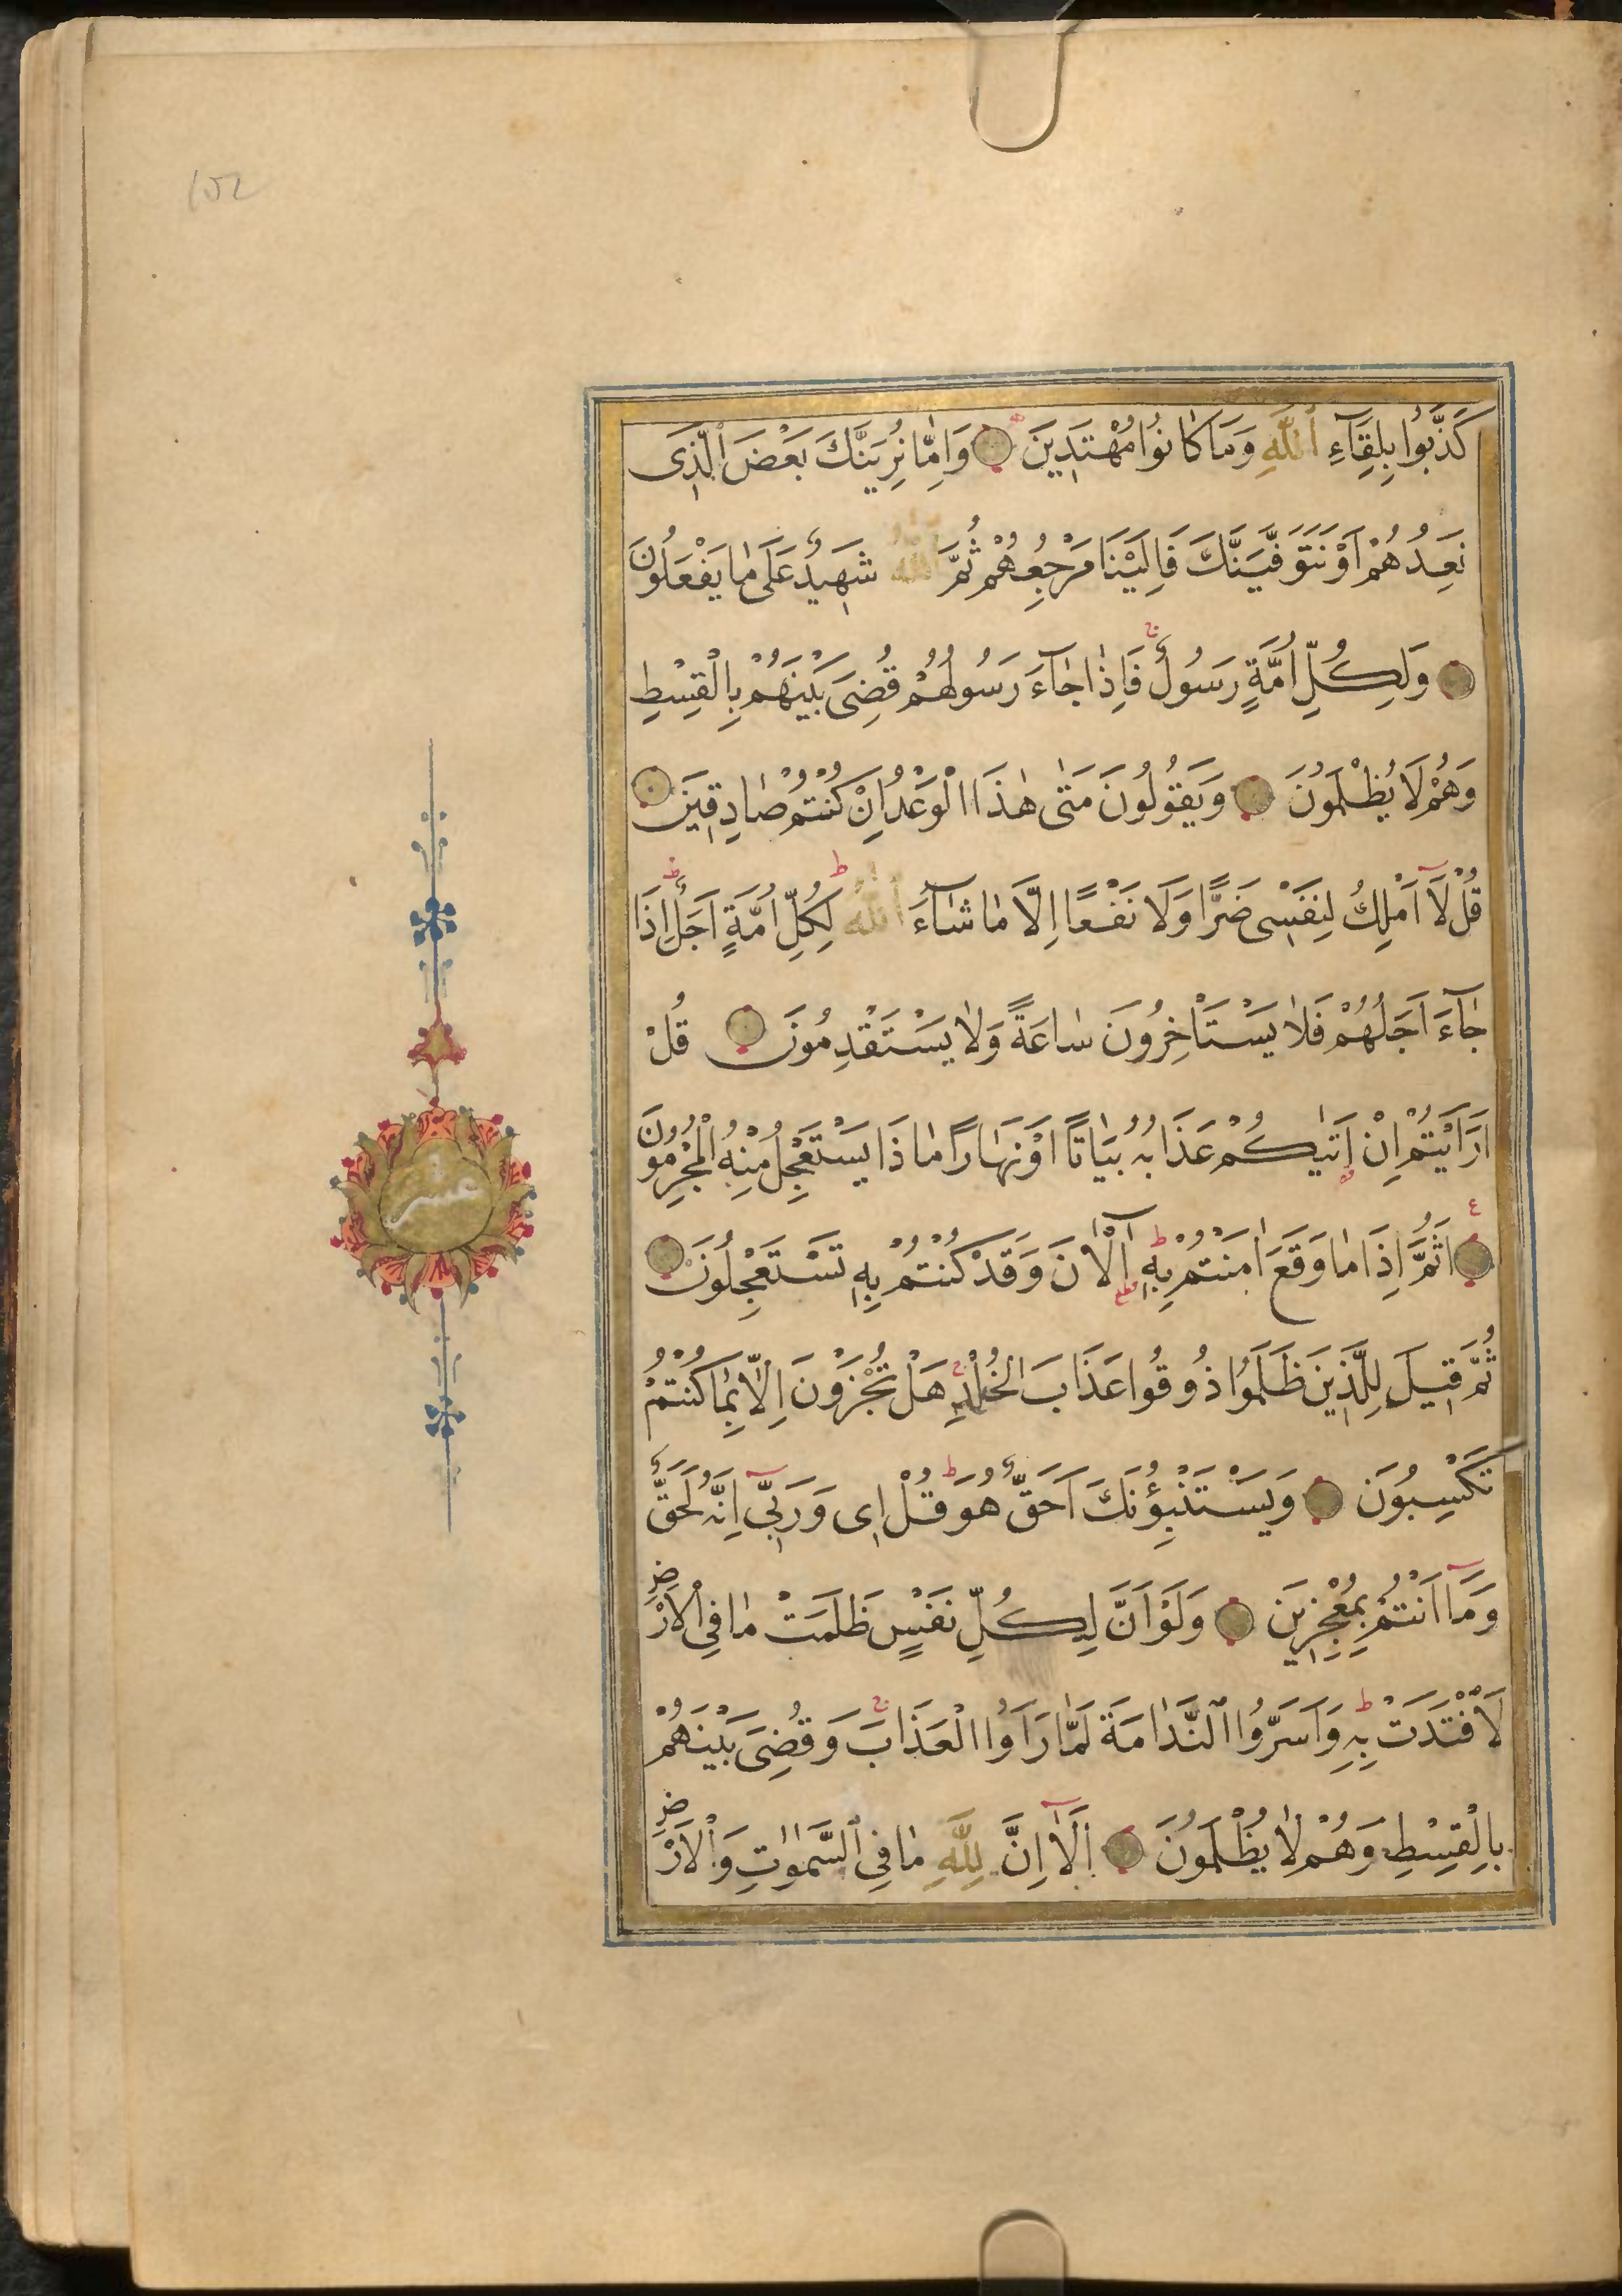 ١٥٢
كَذَّبُوا بِلِقَآءِ اللّٰهِ وَمَا كَانُوا مُهْتَدِينَ وَاِمَّا نُرِيَنَّكَ بَعْضَ الَّذِى
نَعِدُهُمْ اَوْ نَتَوَفَّيَنَّكَ فَاِلَيْنَا مَرْجِعُهُمْ ثُمَّ اللّٰهُ شَهِيدٌ عَلَى مَا يَفْعَلُونَ
وَلِكُلِّ اُمَّةٍ رَسُولٌ فَاِذَا جَآءَ رَسُولُهُمْ قُضِىَ بَيْنَهُمْ بِالْقِسْطِ
وَهُمْ لَا يُظْلَمُونَ وَيَقُولُونَ مَتٰى هٰذَا الْوَعْدُ اِنْ كُنْتُمْ صَادِقِينَ
قُلْ لَآ اَمْلِكُ لِنَفْسِى ضَرًّا وَلَا نَفْعًا اِلَّا مَا شَآءَ اللّٰهُ لِكُلِّ اُمَّةٍ اَجَلٌ اِذَا
جَآءَ اَجَلُهُمْ فَلَا يَسْتَاْخِرُونَ سَاعَةً وَلَا يَسْتَقْدِمُونَ قُلْ
اَرَاَيْتُمْ اِنْ اَتٰيكُمْ عَذَابُهُ بَيَاتًا اَوْ نَهَارًا مَا ذَا يَسْتَعْجِلُ مِنْهُ الْمُجْرِمُونَ
اَثُمَّ اِذَا مَا وَقَعَ اٰمَنْتُمْ بِهِ آلْاٰنَ وَقَدْ كُنْتُمْ بِهِ تَسْتَعْجِلُونَ
ثُمَّ قِيلَ لِلَّذِينَ ظَلَمُوا ذُوقُوا عَذَابَ الْخُلْدِ هَلْ تُجْزَوْنَ اِلَّا بِمَا كُنْتُمْ
تَكْسِبُونَ وَيَسْتَنْبِؤُنَكَ اَحَقٌّ هُوَ قُلْ اِى وَرَبِّى اِنَّهُ لَحَقٌّ
وَمَآ اَنْتُمْ بِمُعْجِزِينَ وَلَوْ اَنَّ لِكُلِّ نَفْسٍ ظَلَمَتْ مَا فِى الْاَرْضِ
لَافْتَدَتْ بِهِ وَاَسَرُّوا النَّدَامَةَ لَمَّا رَاَوُا الْعَذَابَ وَقُضِىَ بَيْنَهُمْ
بِالْقِسْطِ وَهُمْ لَا يُظْلَمُونَ اَلَآ اِنَّ لِلّٰهِ مَا فِى السَّمٰوَاتِ وَالْاَرْضِ